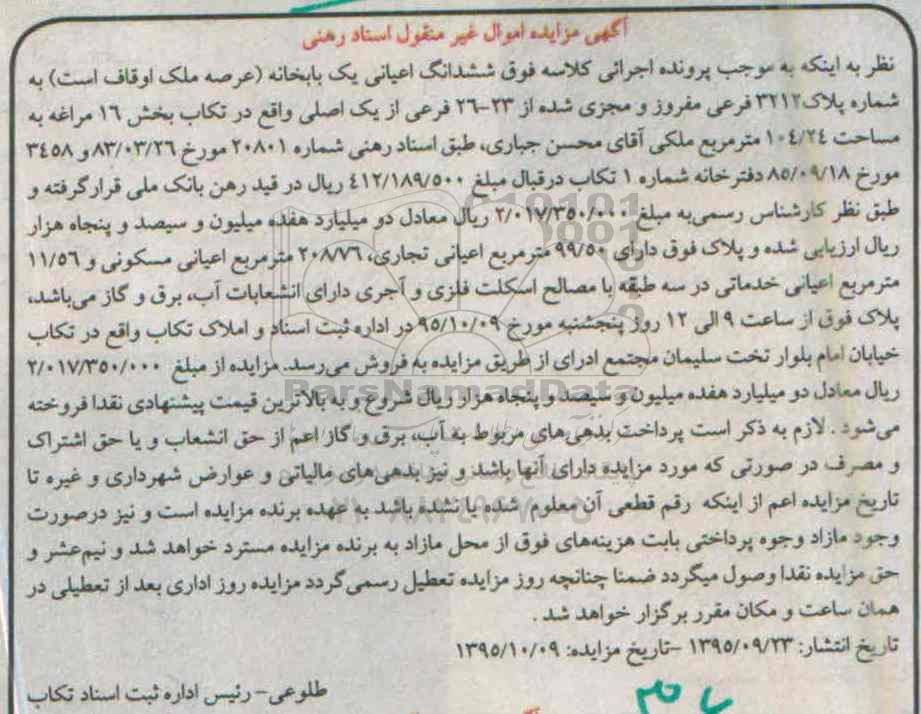 آگهی مزایده اموال غیر منقول اسناد رهنی
نظر به اینکه به موجب پرونده اجرائی کلاسه فوق ششدانگ اعیانی یک بابخانه (عرصه ملک اوقاف است) به
شماره پلاک۳۲۱۲ فرعی مفروز و مجزی شده از ۲۳-۲۶ فرعی از یک اصلی واقع در تکاب بخش ۱۶ مراغه به
مساحت ۱۰۴/۲۴ مترمربع ملکی آقای محسن جباری، طبق اسناد رهنی شماره ۲۰۸۰۱ مورخ ۸۳/۰۳/۲۶ و ۳۴۵۸
مورخ ۸۵/۰۹/۱۸ دفترخانه شماره ۱ تکاب درقبال مبلغ ۴۱۲/۱۸۹/۵۰۰ ریال در قید رهن بانک ملی قرارگرفته و
طبق نظر کارشناس رسمی‌به مبلغ ۲/۰۱۷/۳۵۰/۰۰۰ ریال معادل دو میلیارد هفده میلیون و سیصد و پنجاه هزار
ریال ارزیابی شده و پلاک فوق دارای ۹۹/۵۰ مترمربع اعیانی تجاری، ۲۰۸/۷۶ مترمربع اعیانی مسکونی و ۱۱/۵۶
مترمربع اعیانی خدماتی در سه طبقه با مصالح اسکلت فلزی و آجری دارای انشعابات آب، برق و گاز می‌باشد،
پلاک فوق از ساعت ۹ الی ۱۲ روز پنجشنبه مورخ ۹۵/۱۰/۰۹ در اداره ثبت اسناد و املاک تکاب واقع در تکاب
خیابان امام بلوار تخت سلیمان مجتمع ادرای از طریق مزایده به فروش می‌رسد. مزایده از مبلغ ۲/۰۱۷/۳۵۰/۰۰۰
ریال معادل دو میلیارد هفده میلیون و سیصد و پنجاه هزار ریال شروع و به بالاترین قیمت پیشنهادی نقدا فروخته
می‌شود . لازم به ذکر است پرداخت بدهی‌های مربوط به آب، برق و گاز اعم از حق انشعاب و یا حق اشتراک
و مصرف در صورتی که مورد مزایده دارای آنها باشد و نیز بدهی‌های مالیاتی و عوارض شهرداری و غیره تا
تاریخ مزایده اعم از اینکه رقم قطعی آن معلوم شده یا نشده باشد به عهده برنده مزایده است و نیز درصورت
وجود مازاد وجوه پرداختی بابت هزینه‌های فوق از محل مازاد به برنده مزایده مسترد خواهد شد و نیم‌عشر و
حق مزایده نقدا وصول میگردد ضمنا چنانچه روز مزایده تعطیل رسمی‌گردد مزایده روز اداری بعد از تعطیلی در
همان ساعت و مکان مقرر برگزار خواهد شد .
تاریخ انتشار: ۱۳۹۵/۰۹/۲۳ -تاریخ مزایده: ۱۳۹۵/۱۰/۰۹
طلوعی- رئیس اداره ثبت اسناد تکاب
ParsNamadData